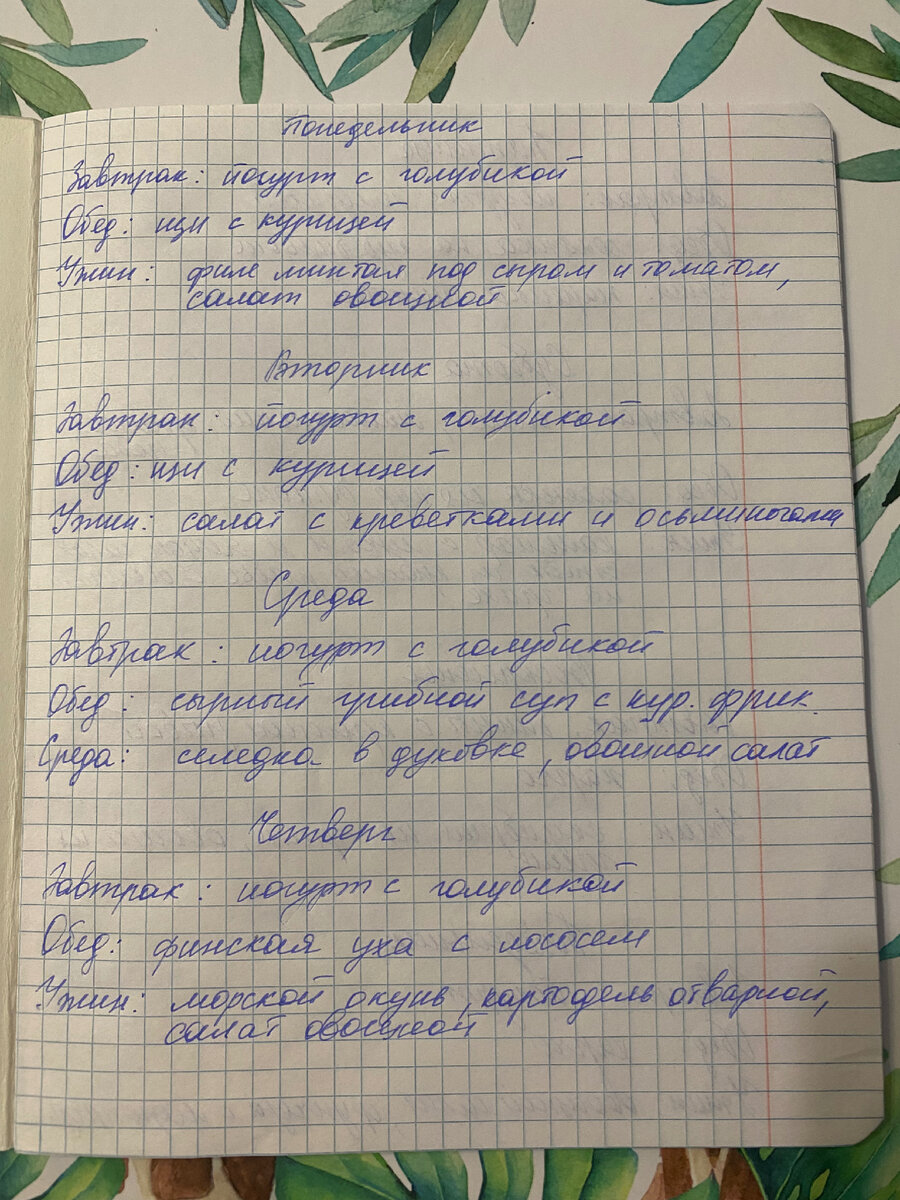 Понедельник
Завтрак: йогурт с голубикой
Обед: щи с курицей
Ужин: филе минтая под сыром и томатом,
салат овощной
Вторник
Завтрак: йогурт с голубикой
Обед: щи с курицей
Ужин: салат с креветками и осьминогами
Среда
Завтрак: йогурт с голубикой
Обед: сырный грибной суп с кур. фрик.
Среда: селедка в духовке, овощной салат
Четверг
Завтрак: йогурт с голубикой
Обед: финская уха с лососем
Ужин: морской окунь, картофель отварной,
салат овощной